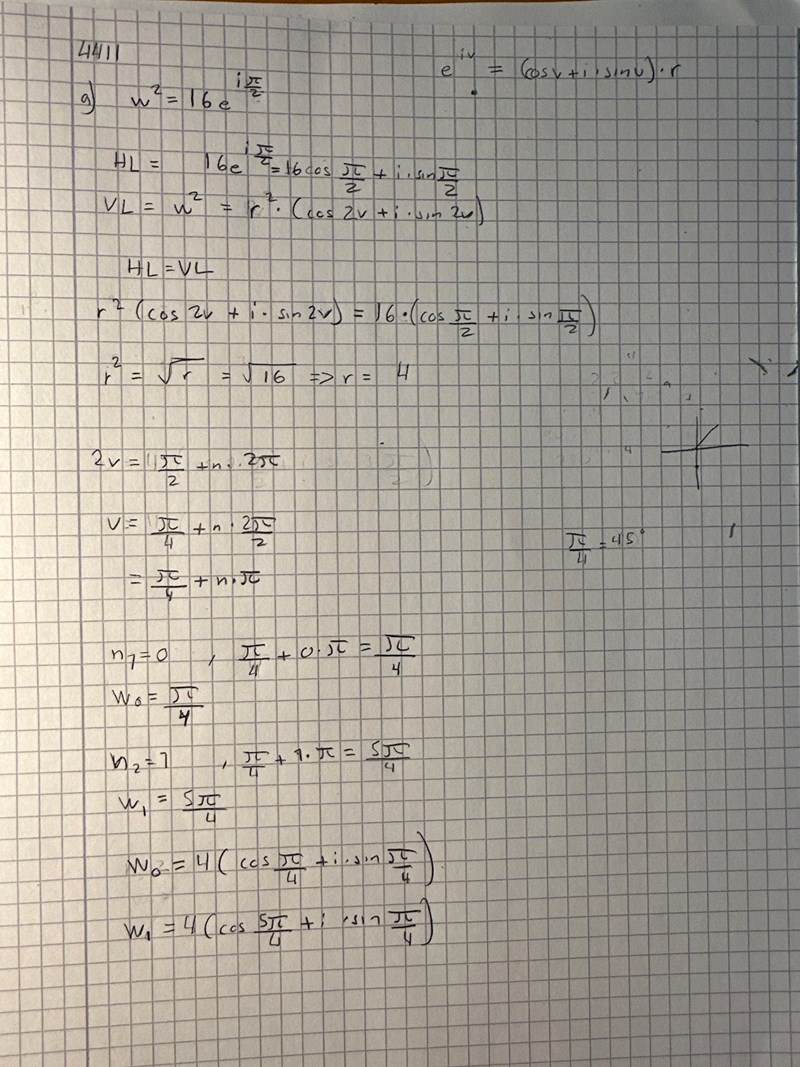 4411
e^{iv} = (cosv+i·sinv)·r
a) w² = 16e^{i π/2}
HL = 16e^{i π/2} = 16cos π/2 + i·sin π/2
VL = w² = r²·(cos 2v + i·sin 2v)
HL = VL
r² (cos 2v + i·sin 2v) = 16·(cos π/2 + i·sin π/2)
r² = √r = √16 => r = 4
2v = π/2 + n·2π
v = π/4 + n·2π/2
π/4 = 45°
= π/4 + n·π
n₁=0 , π/4 + 0·π = π/4
w₀ = π/4
n₂=1 , π/4 + 1·π = 5π/4
w₁ = 5π/4
w₀ = 4(cos π/4 + i·sin π/4)
w₁ = 4(cos 5π/4 + i·sin π/4)